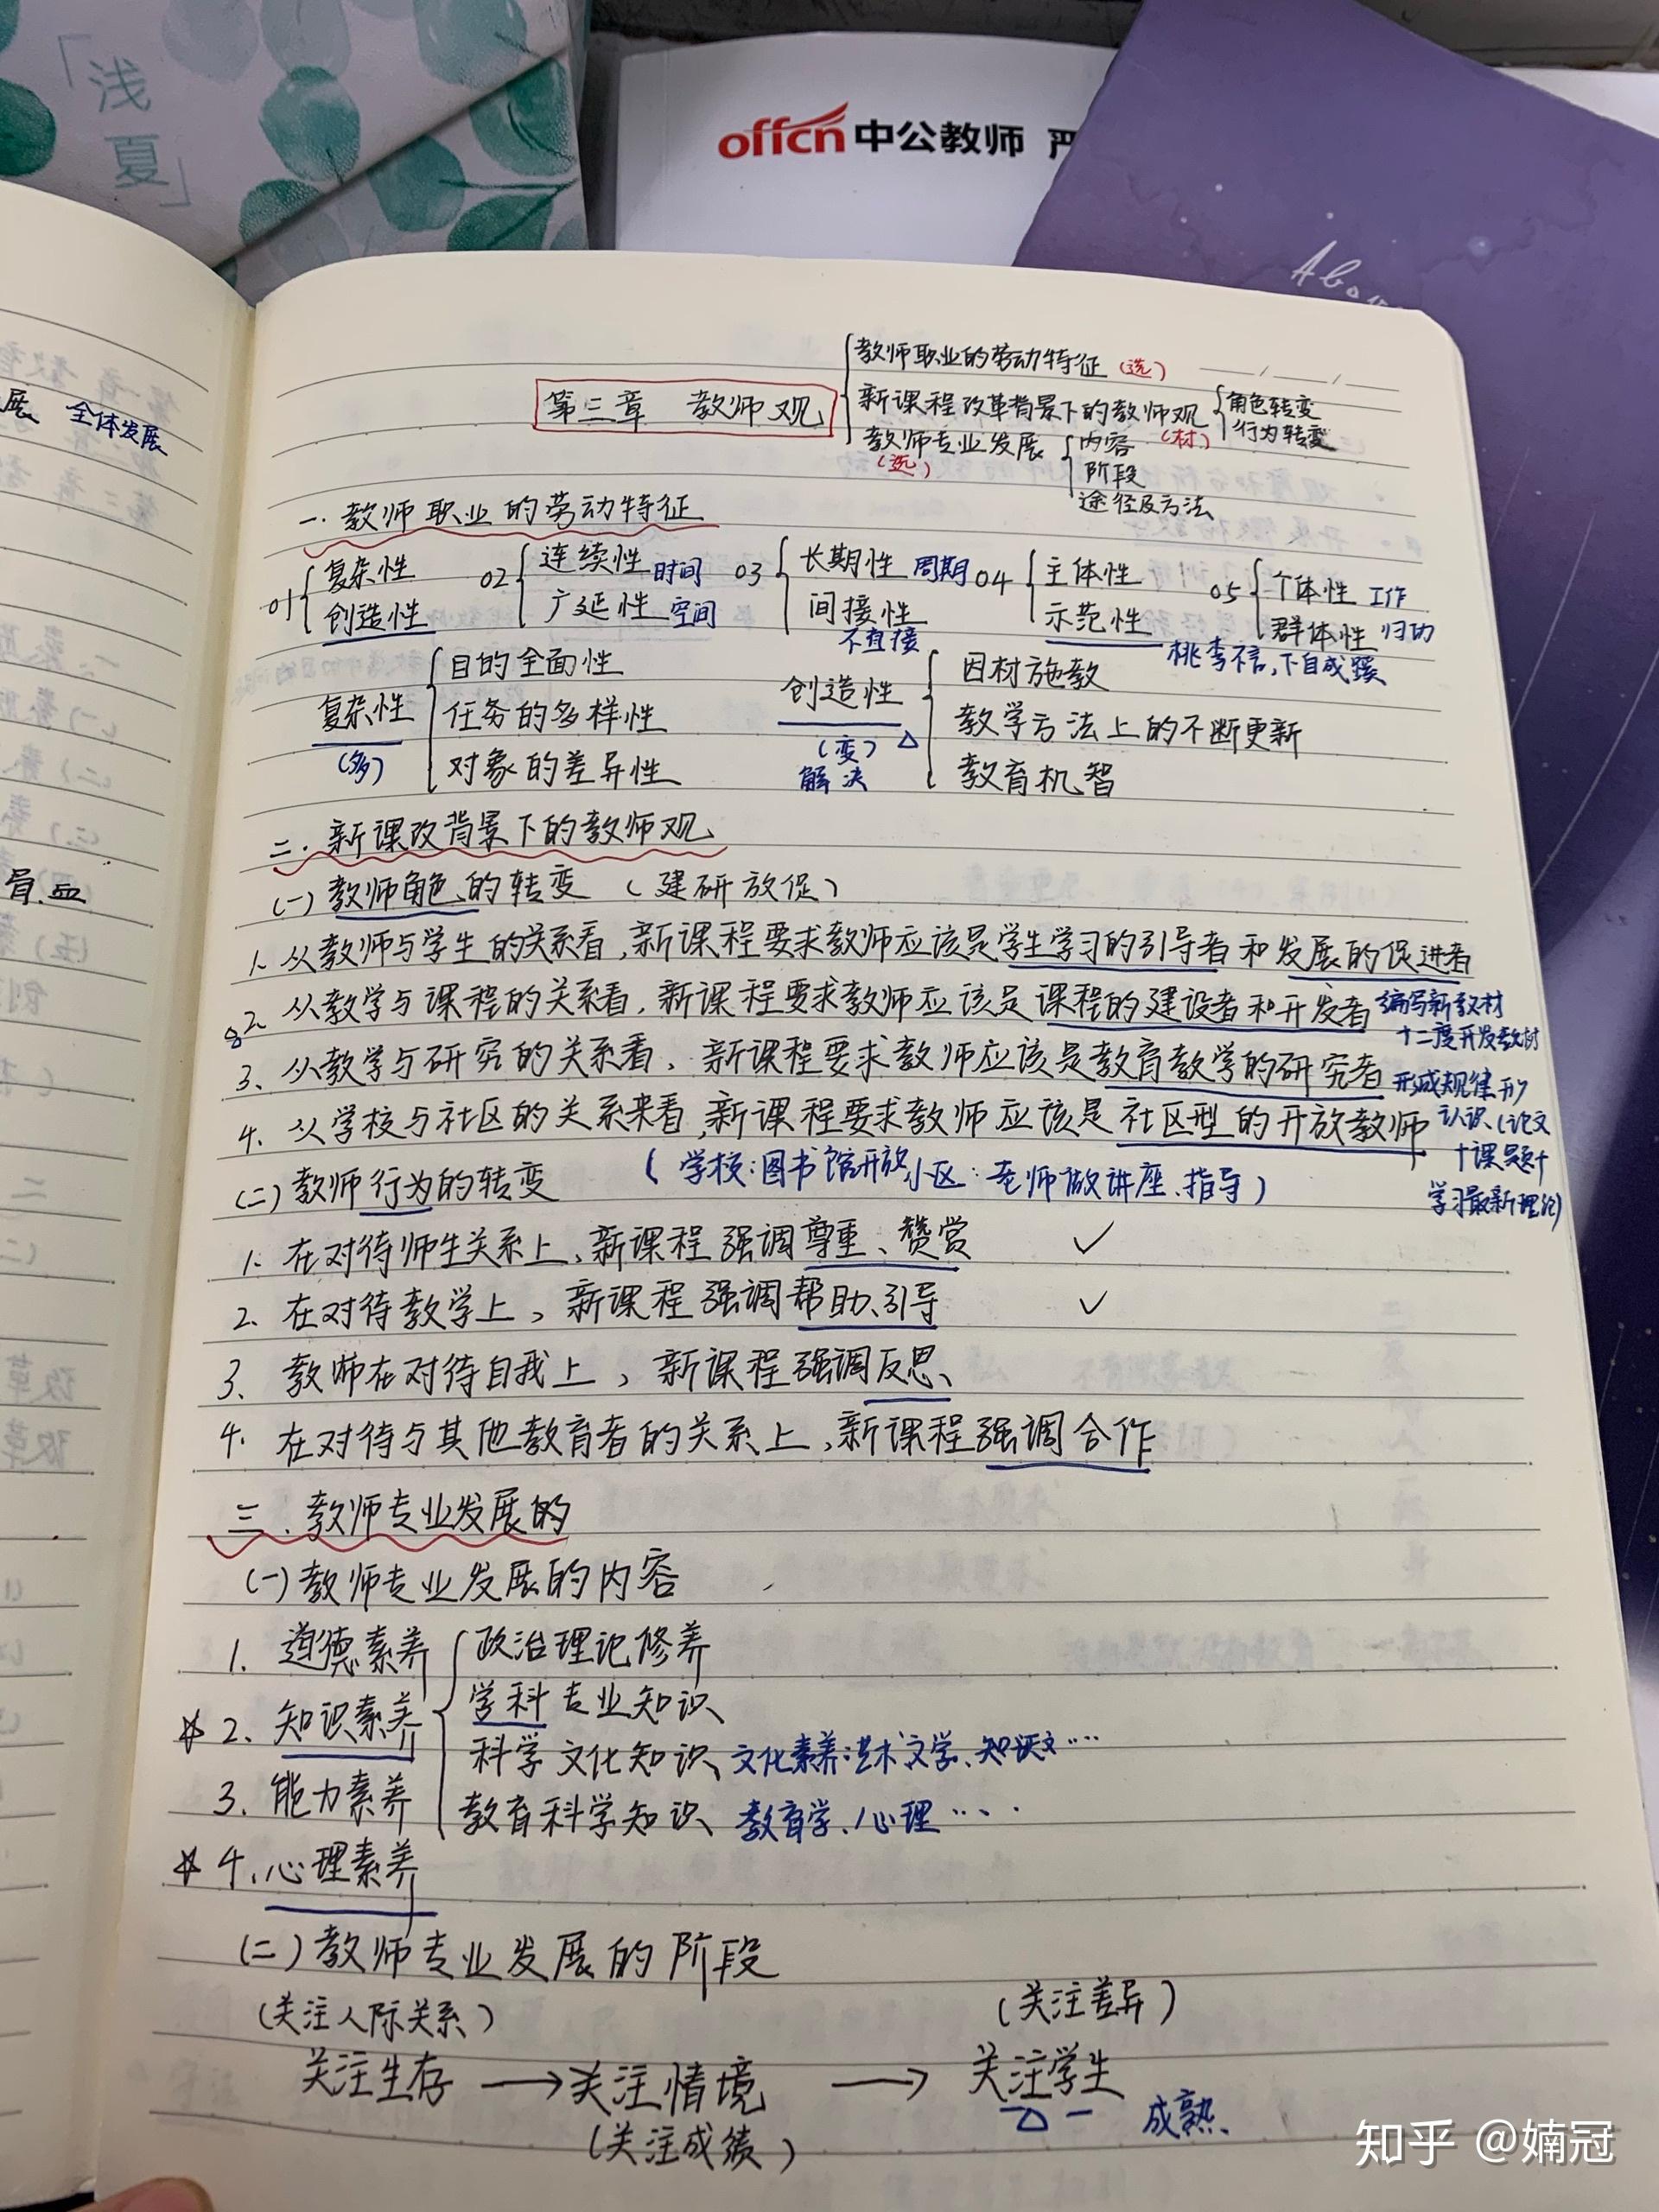 「浅夏」
offcn 中公教师 严
展 全体发展
骨.血
教师职业的劳动特征 (选)
第三章 教师观
新课程改革背景下的教师观 (材)
角色转变
行为转变
教师专业发展 (选)
内容
阶段
途径及方法
一.教师职业的劳动特征
01 复杂性 创造性
02 连续性 时间 广延性 空间
03 长期性 周期 间接性 不直接
04 主体性 示范性
05 个体性 工作 群体性 归功
桃李不言,下自成蹊
复杂性 (多)
目的全面性
任务的多样性
对象的差异性
创造性 (变) 解决
因材施教
教学方法上的不断更新
教育机智
二.新课改背景下的教师观
(一)教师角色的转变 (建研放促)
1、从教师与学生的关系看,新课程要求教师应该是学生学习的引导者和发展的促进者
2、从教学与课程的关系看,新课程要求教师应该是课程的建设者和开发者 编写新教材
十二度开发教材
3、从教学与研究的关系看,新课程要求教师应该是教育教学的研究者 形成规律
4、从学校与社区的关系来看,新课程要求教师应该是社区型的开放教师 认识(论文
+课题+
学习最新理论)
(学校:图书馆开放 小区:老师做讲座、指导)
(二)教师行为的转变
1、在对待师生关系上、新课程强调尊重、赞赏 ✓
2、在对待教学上,新课程强调帮助、引导 ✓
3、教师在对待自我上,新课程强调反思、
4.在对待与其他教育者的关系上,新课程强调合作
三.教师专业发展的
(一)教师专业发展的内容
1.道德素养
☆2、知识素养
3、能力素养
☆4、心理素养
政治理论修养
学科专业知识
科学文化知识、文化素养:艺术文学、知识文……
教育科学知识、教育学、心理……
(二)教师专业发展的阶段
(关注人际关系) (关注差异)
关注生存 → 关注情境 → 关注学生
(关注成绩) 成熟、
知乎 @婻冠